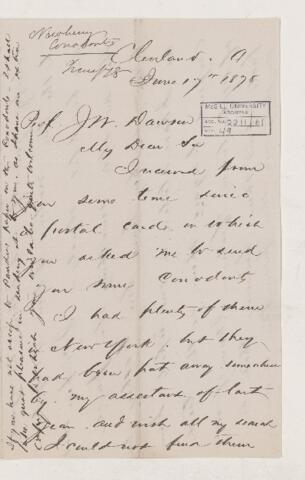 Newberry
Conodonts
June/78
Cleveland. O
June 17" 1878
McGILL UNIVERSITY
ARCHIVES
ACC. NO. 2211/61
REF. 49
Prof J.W. Dawson
My Dear Sir
I received from
you some time since
a postal card in which
you asked me to send
you some Conodonts
I had plenty of them
in New York. but they
had been put away somewhere
by my assistant of last
year. and with all my search
I could not find them
If you have not access to Pander's paper on the Conodonts - I shall
take great pleasure in sending it to you. as I have an extra
copy to which you would be quite welcome